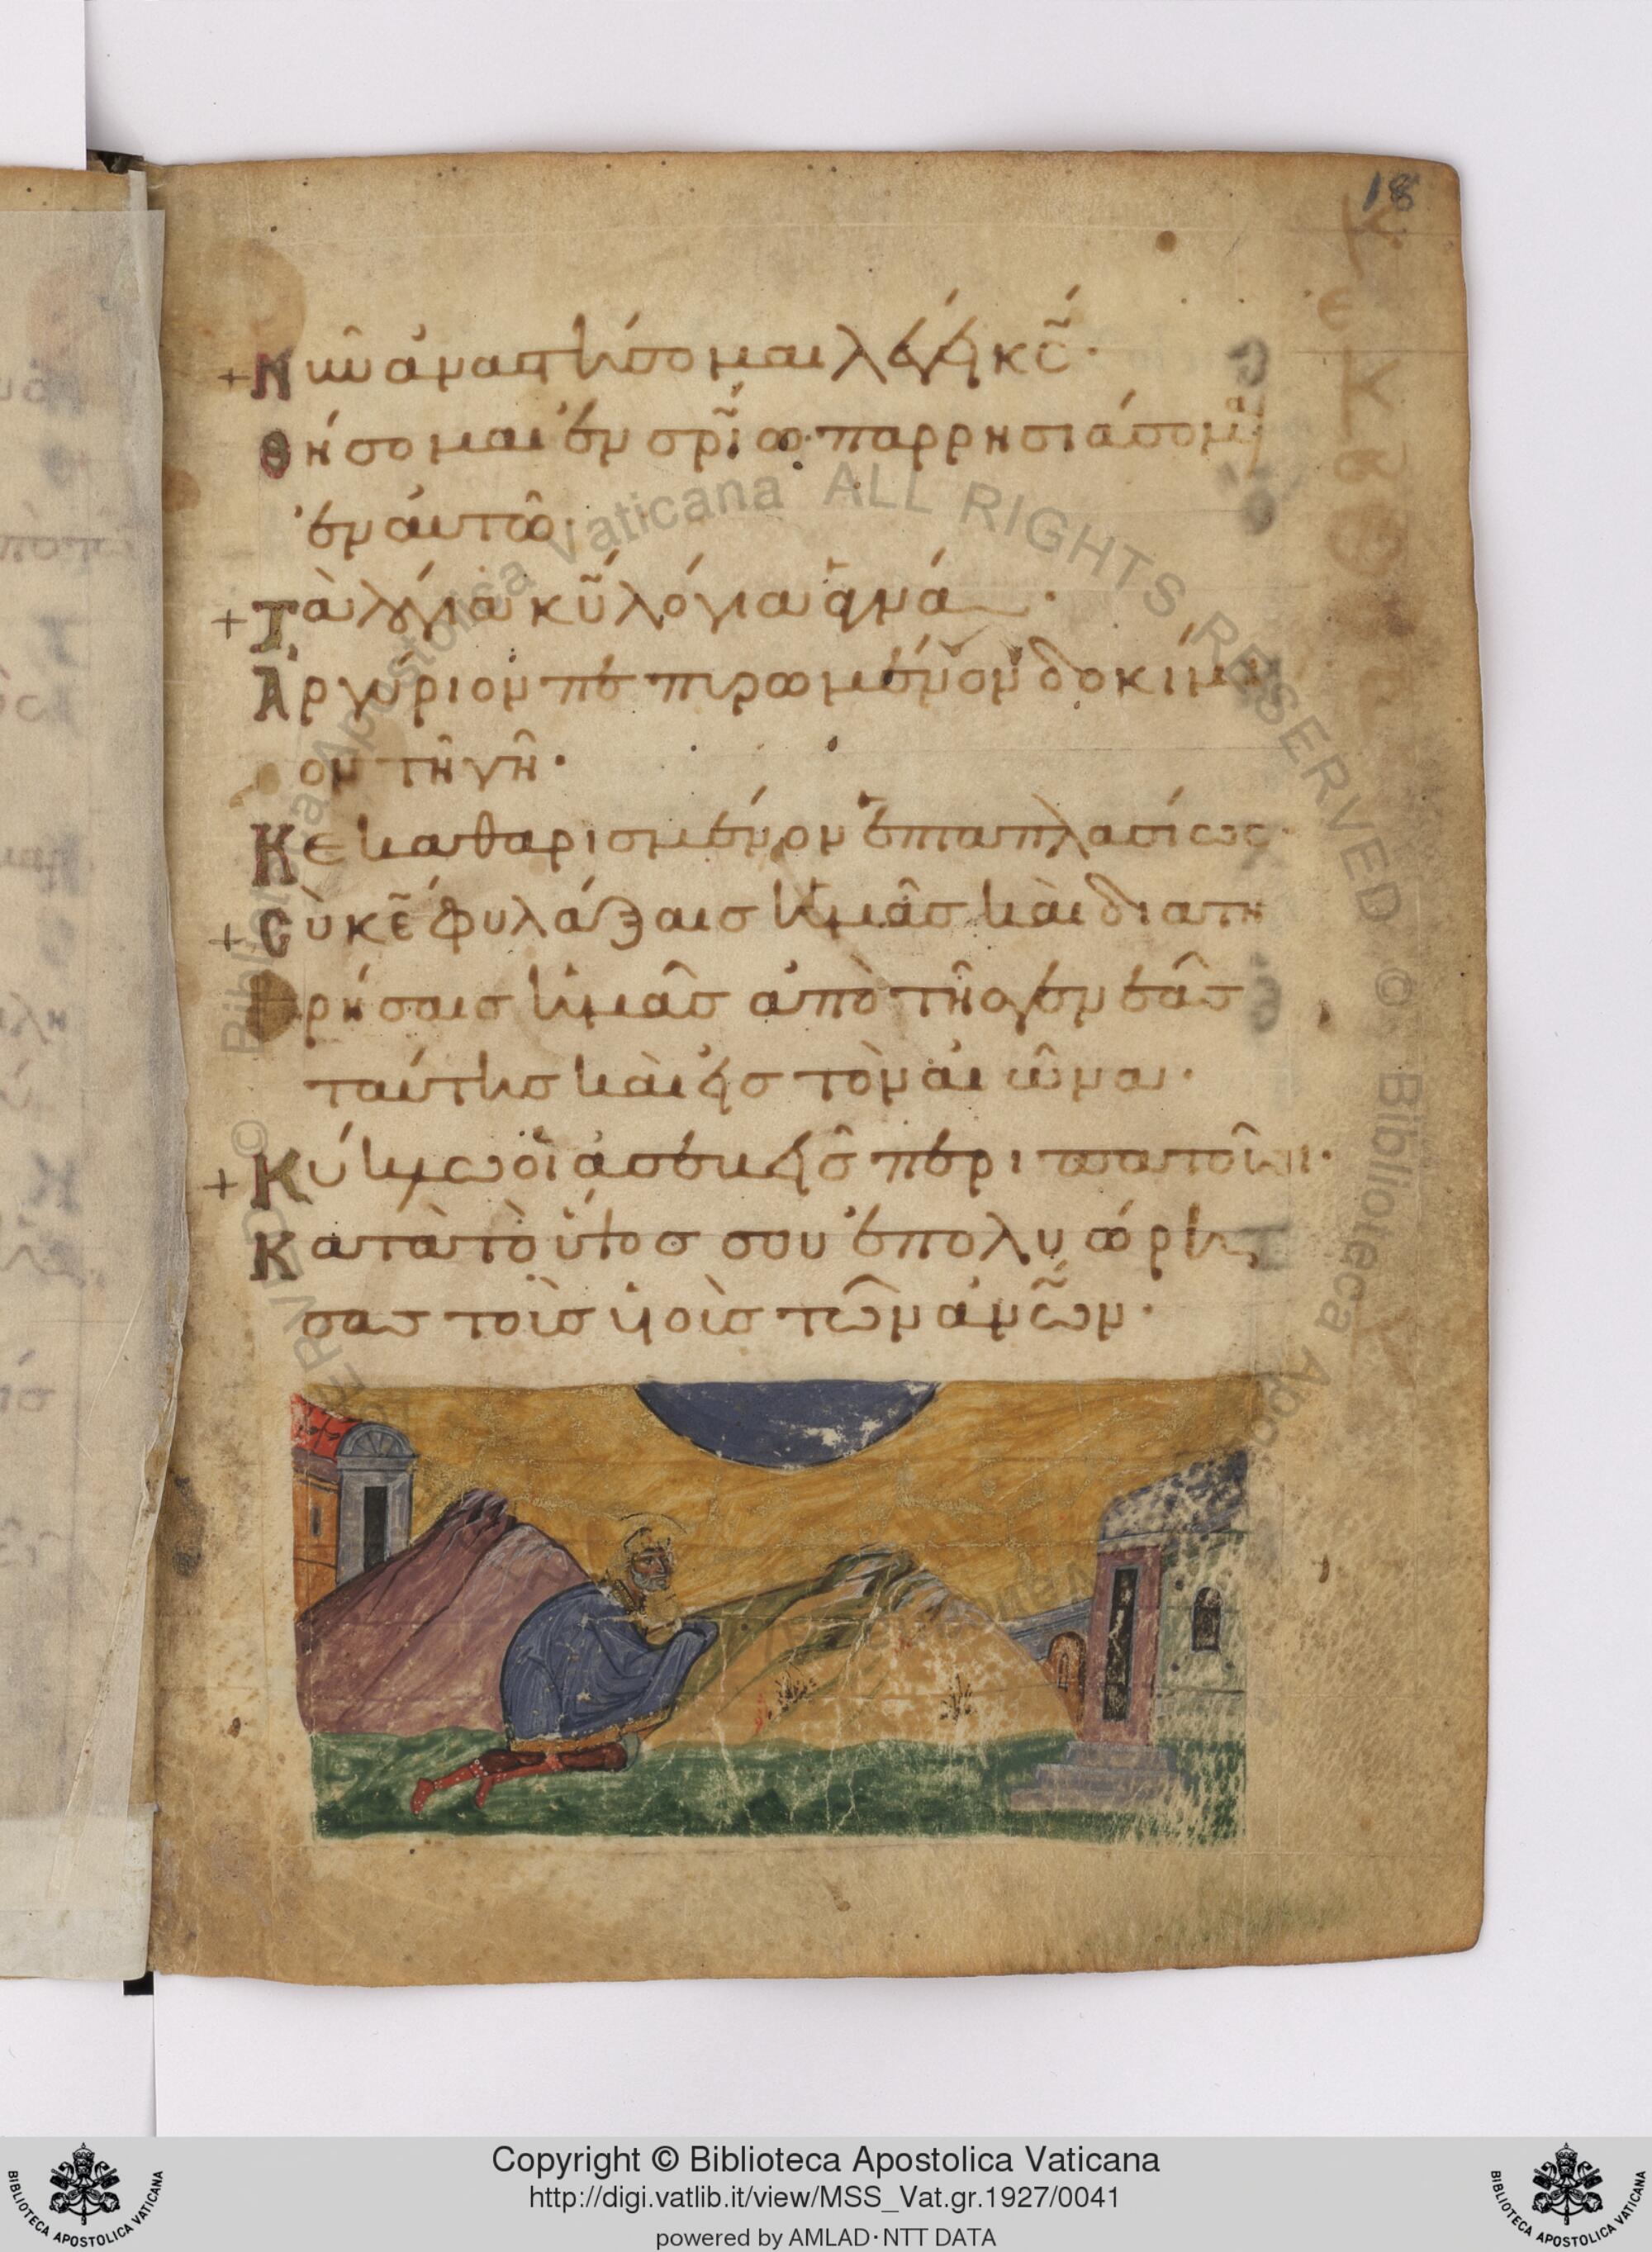 18
Νῦν ἀναστήσομαι λέγει κς·
θήσομαι ἐν σρίω· παρρησιάσομαι
ἐν αυτῶ·
Τὰ λόγια κῦ λόγια ἁγνά·
Ἀργύριον πεπυρωμένον δοκίμι
ον τῆ γῆ·
Κεκαθαρισμένον ἑπταπλασίως·
Σὺ κε φυλάξαις ἡμᾶς καὶ διατη
ρήσαις ἡμᾶς ἀπὸ τῆς γενεᾶς
ταύτης καὶ εἰς τὸν αἰῶνα·
Κύκλω οἱ ἀσεβεῖς περιπατοῦσι·
Κατὰ τὸ ὕψος σου ἐπολυώρη
σας τοὺς υἱοὺς τῶν ἀνῶν·
© Biblioteca Apostolica Vaticana ALL RIGHTS RESERVED
Copyright © Biblioteca Apostolica Vaticana
http://digi.vatlib.it/view/MSS_Vat.gr.1927/0041
powered by AMLAD·NTT DATA
BIBLIOTECA APOSTOLICA VATICANA
BIBLIOTECA APOSTOLICA VATICANA